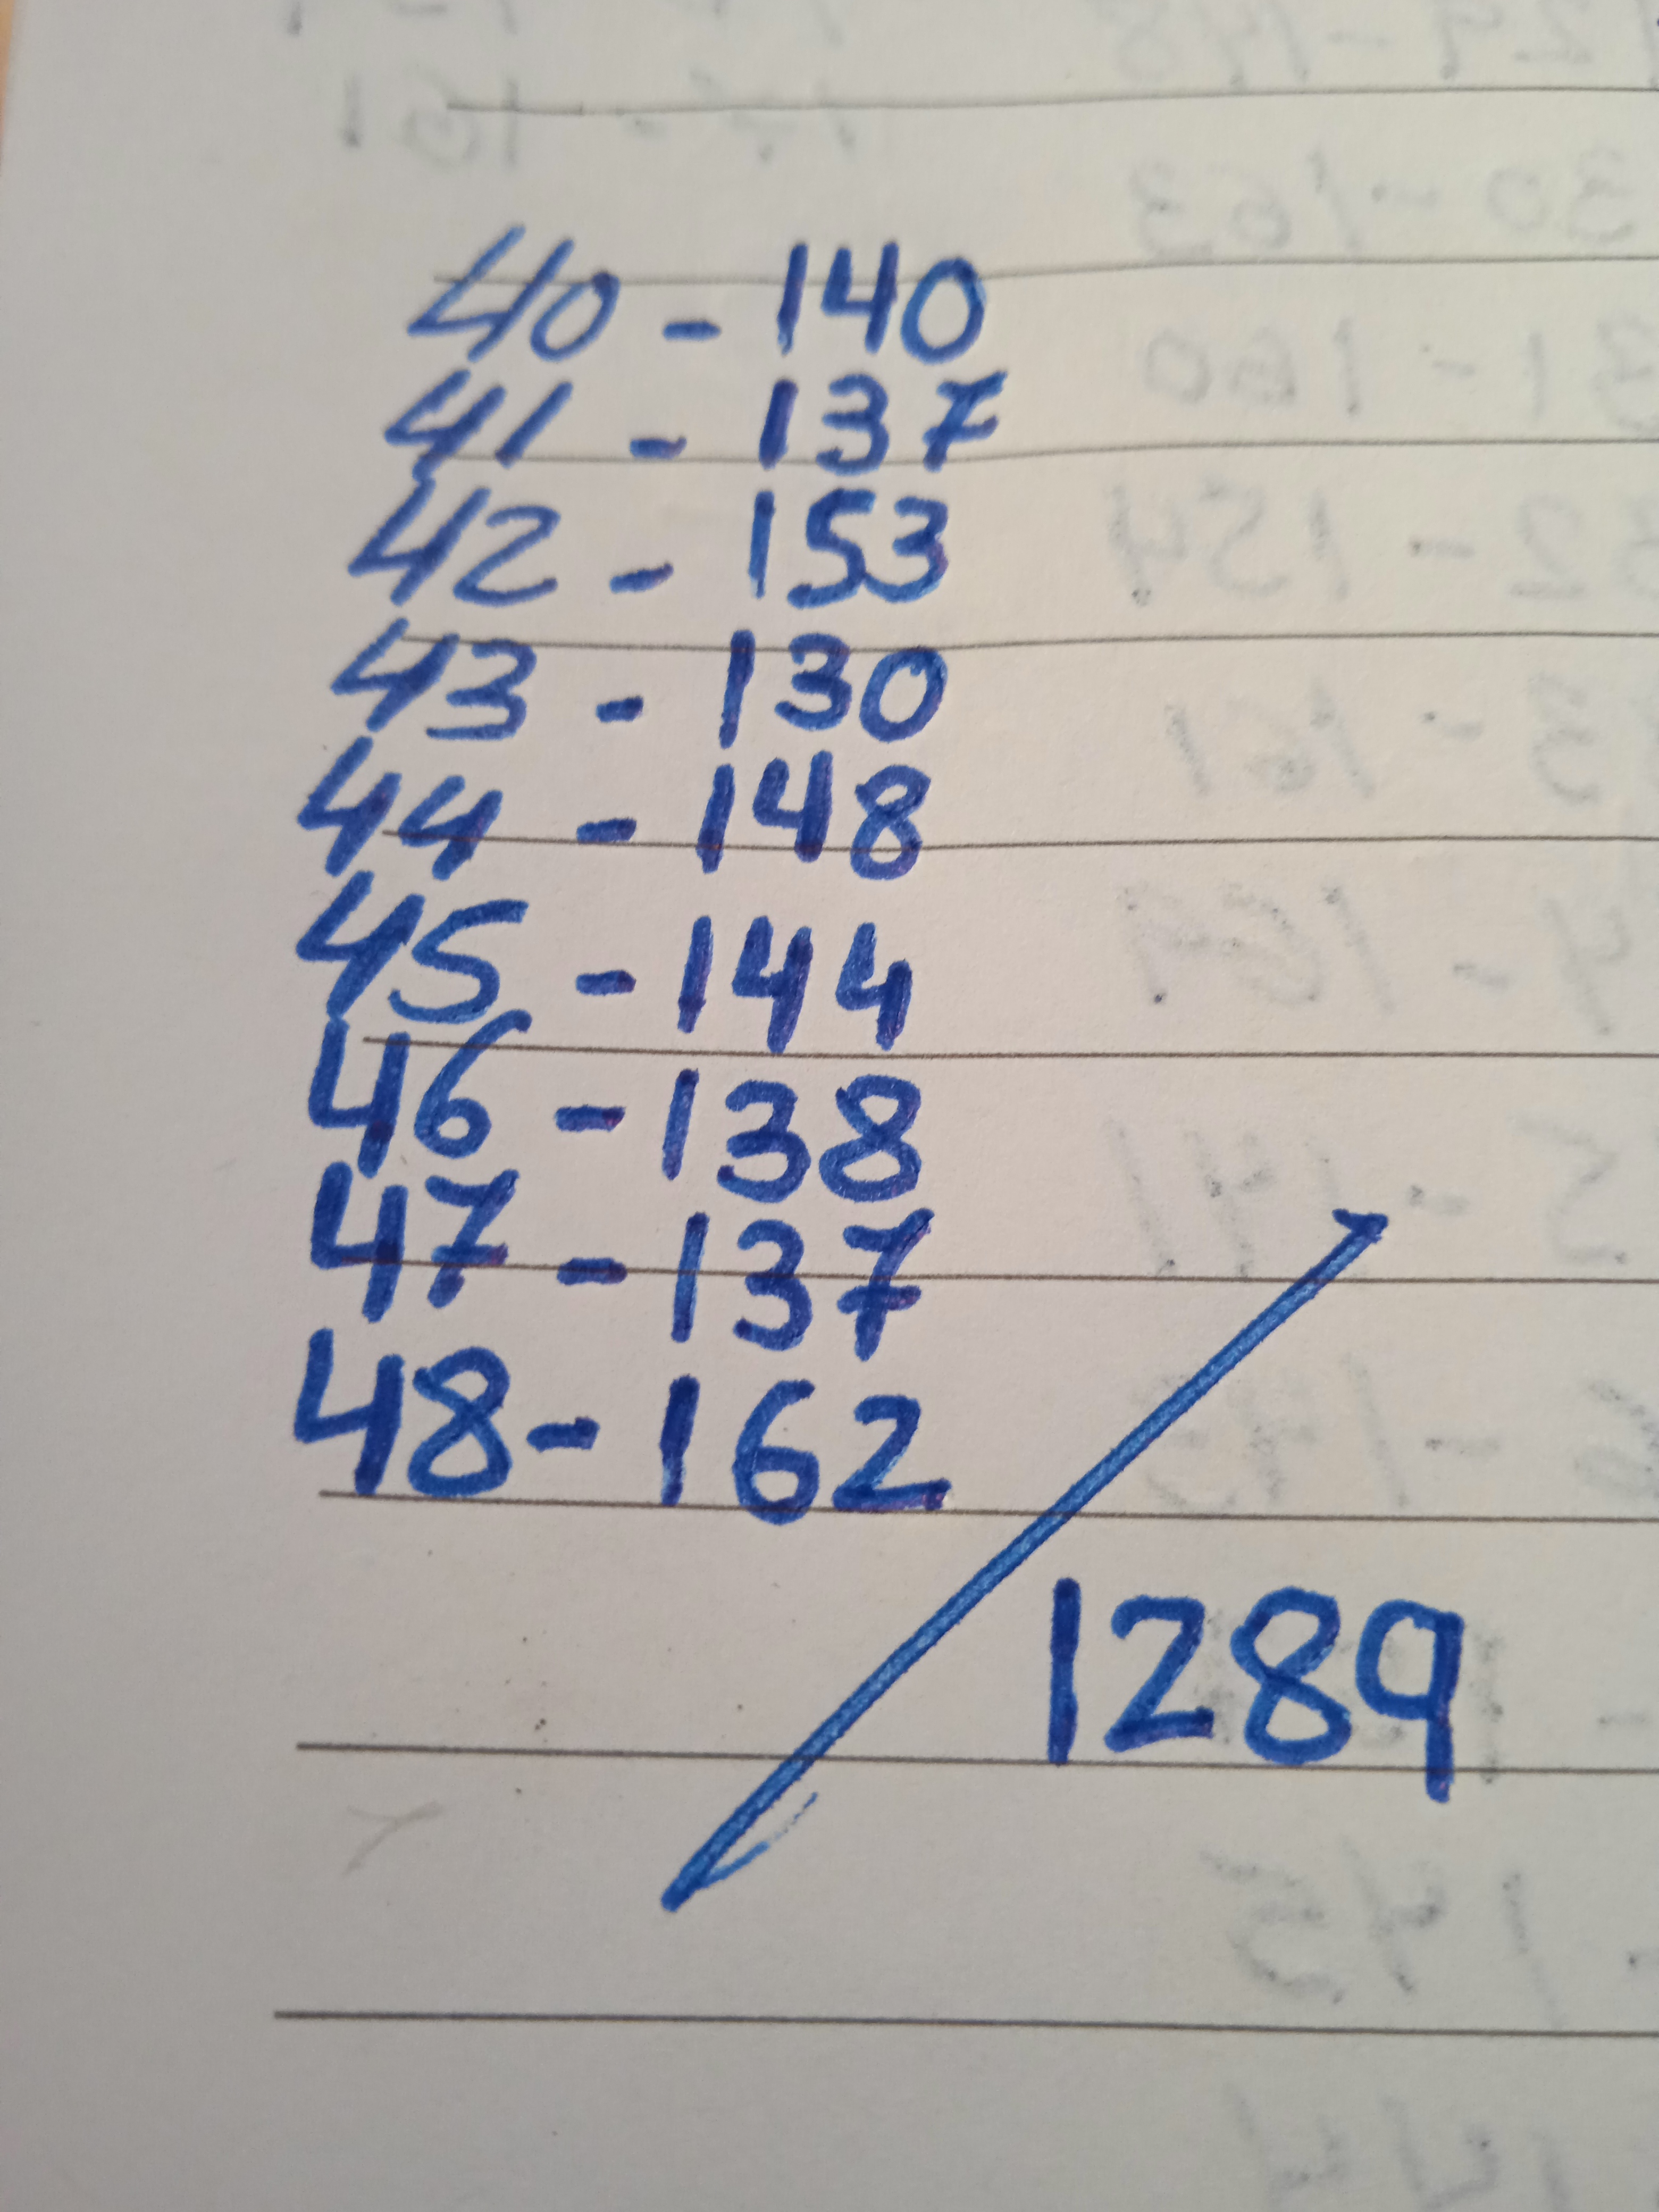 40 - 140
41 - 137
42 - 153
43 - 130
44 - 148
45 - 144
46 - 138
47 - 137
48 - 162
1289